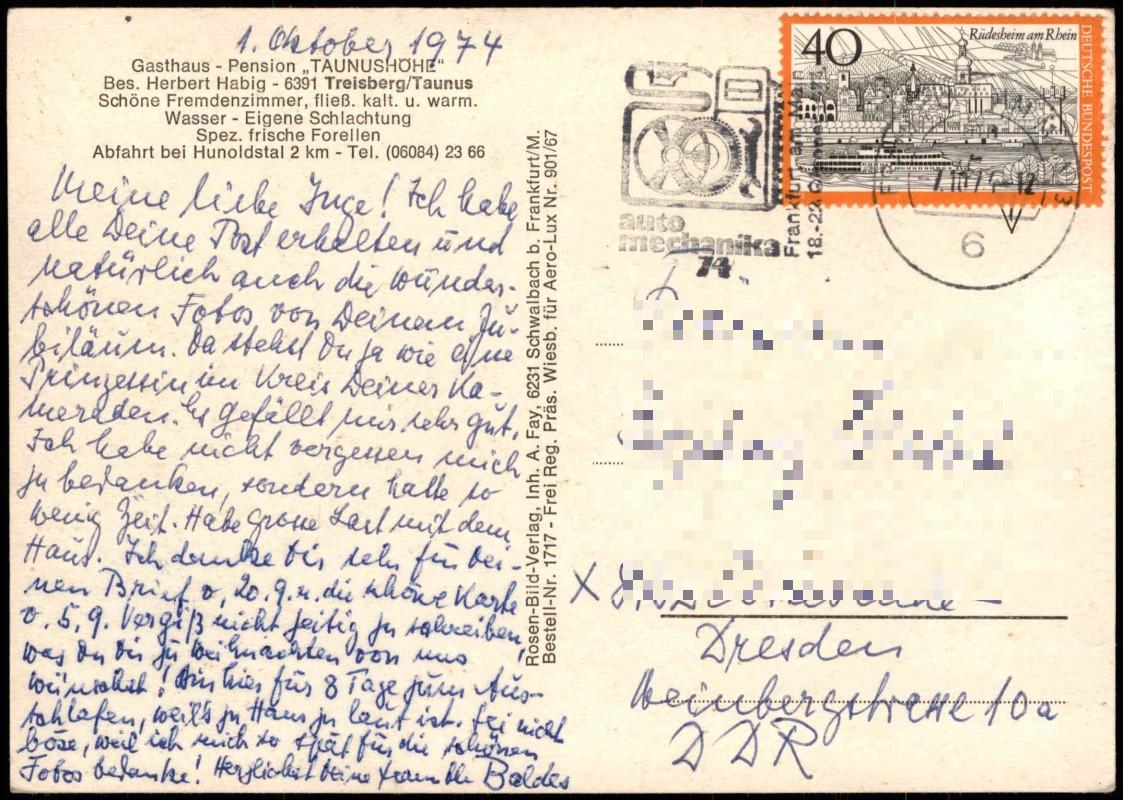 1. Oktober 1974
Gasthaus - Pension „TAUNUSHÖHE"
Bes. Herbert Habig - 6391 Treisberg/Taunus
Schöne Fremdenzimmer, fließ. kalt. u. warm.
Wasser - Eigene Schlachtung
Spez. frische Forellen
Abfahrt bei Hunoldstal 2 km - Tel. (06084) 23 66
Meine liebe Inge! Ich habe
alle Deine Post erhalten und
natürlich auch die wunder-
schönen Fotos von Deinem Ju-
biläum. Da stehst Du ja wie eine
Prinzessin im Kreis Deiner Ka-
meraden. Es gefällt mir sehr gut.
Ich habe nicht vergessen mich
zu bedanken, sondern hatte so
wenig Zeit. Habe grosse Last mit dem
Haus. Ich danke Dir sehr für Dei-
nen Brief v. 20.9. u. die schöne Karte
v. 5.9. Vergiß nicht zeitig zu schreiben,
was Du Dir zu Weihnachten von uns
wünschst! Bin hier für 8 Tage zum Aus-
schlafen, weil's zu Haus zu laut ist. Sei nicht
böse, weil ich mich so spät für die schönen
Fotos bedanke! Herzlichst Deine
Rosen-Bild-Verlag, Inh. A. Fay, 6231 Schwalbach b. Frankfurt/M.
Bestell-Nr. 1717 - Frei Reg. Präs. Wiesb. für Aero-Lux Nr. 901/67
auto
mechanika
74
Frankfurt am Main
18.-22.
40
Rüdesheim am Rhein
DEUTSCHE BUNDESPOST
6
X
Dresden
Weinbergstrasse 10a
DDR